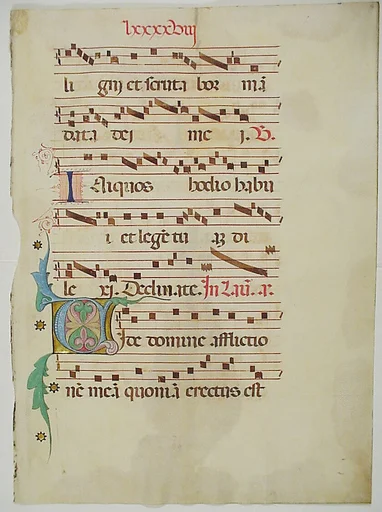 lxxxxviij
li gni et scruta bor ma
data dei me i. V.
Iniquos hodio habu
i et lege tu az di
le xi. Declinate. In Lau. a.
Vide domine afflictio
ne mea quoniam erectus est